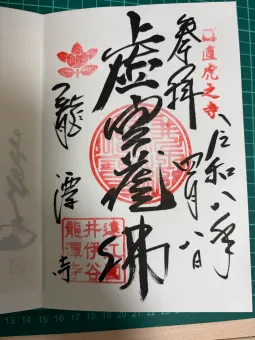 直虎之寺
奉拝
令和八年
四月八日
虚空蔵佛
龍潭寺
遠江國
井伊谷
龍潭寺
13 14 15 16 17 18 19 20 21 22 23 24 25 26